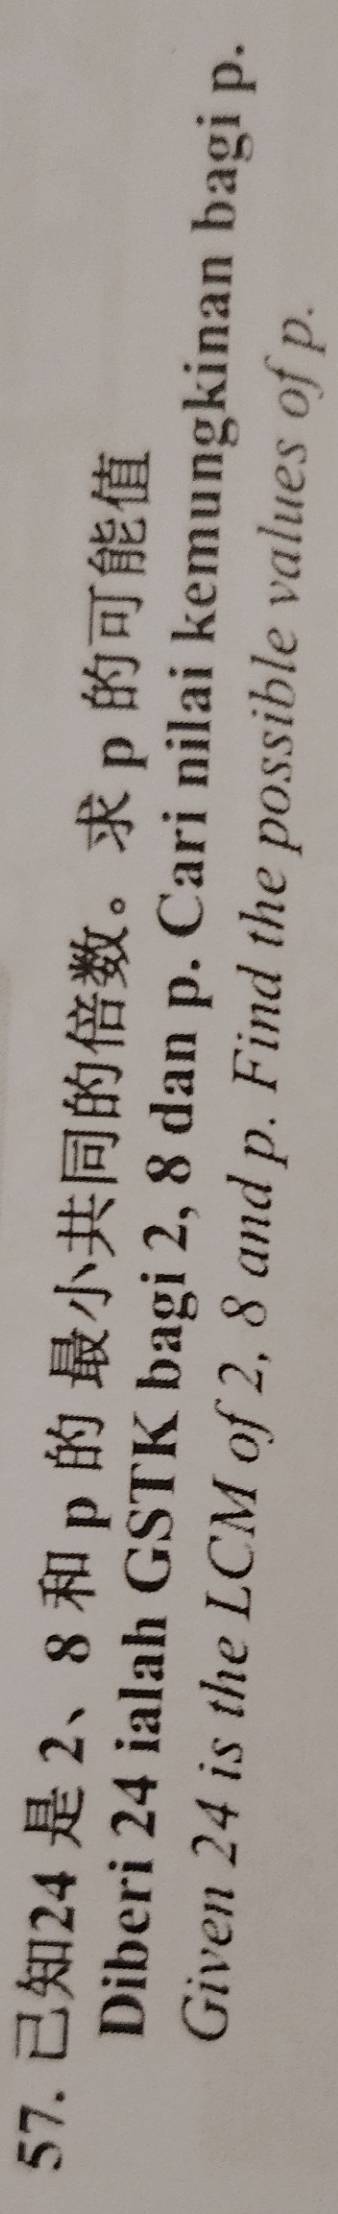 57. 已知24 是 2、8 和 p 的 最小共同的倍数。求 p 的可能值
Diberi 24 ialah GSTK bagi 2, 8 dan p. Cari nilai kemungkinan bagi p.
Given 24 is the LCM of 2, 8 and p. Find the possible values of p.